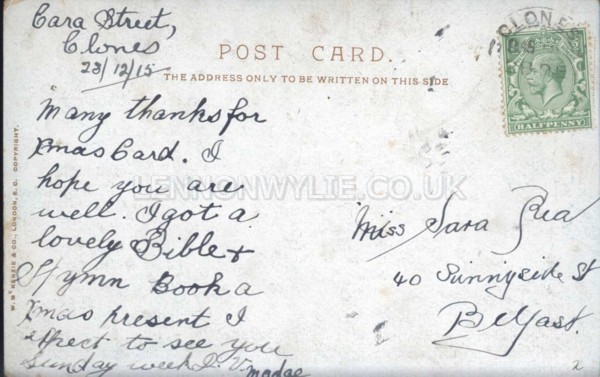 Cara Street,
Clones
23/12/15
POST CARD.
THE ADDRESS ONLY TO BE WRITTEN ON THIS SIDE
CLONES
HALFPENNY
Many thanks for
Xmas Card. I
hope you are
well. I got a
lovely Bible &
Hymn Book a
Xmas present I
expect to see you
Sunday week D. V.
Madge
Miss Sara Rea
40 Sunnyside St
Belfast.
LENNONWYLIE.CO.UK
& CO., LONDON, E.C. COPYRIGHT.
2